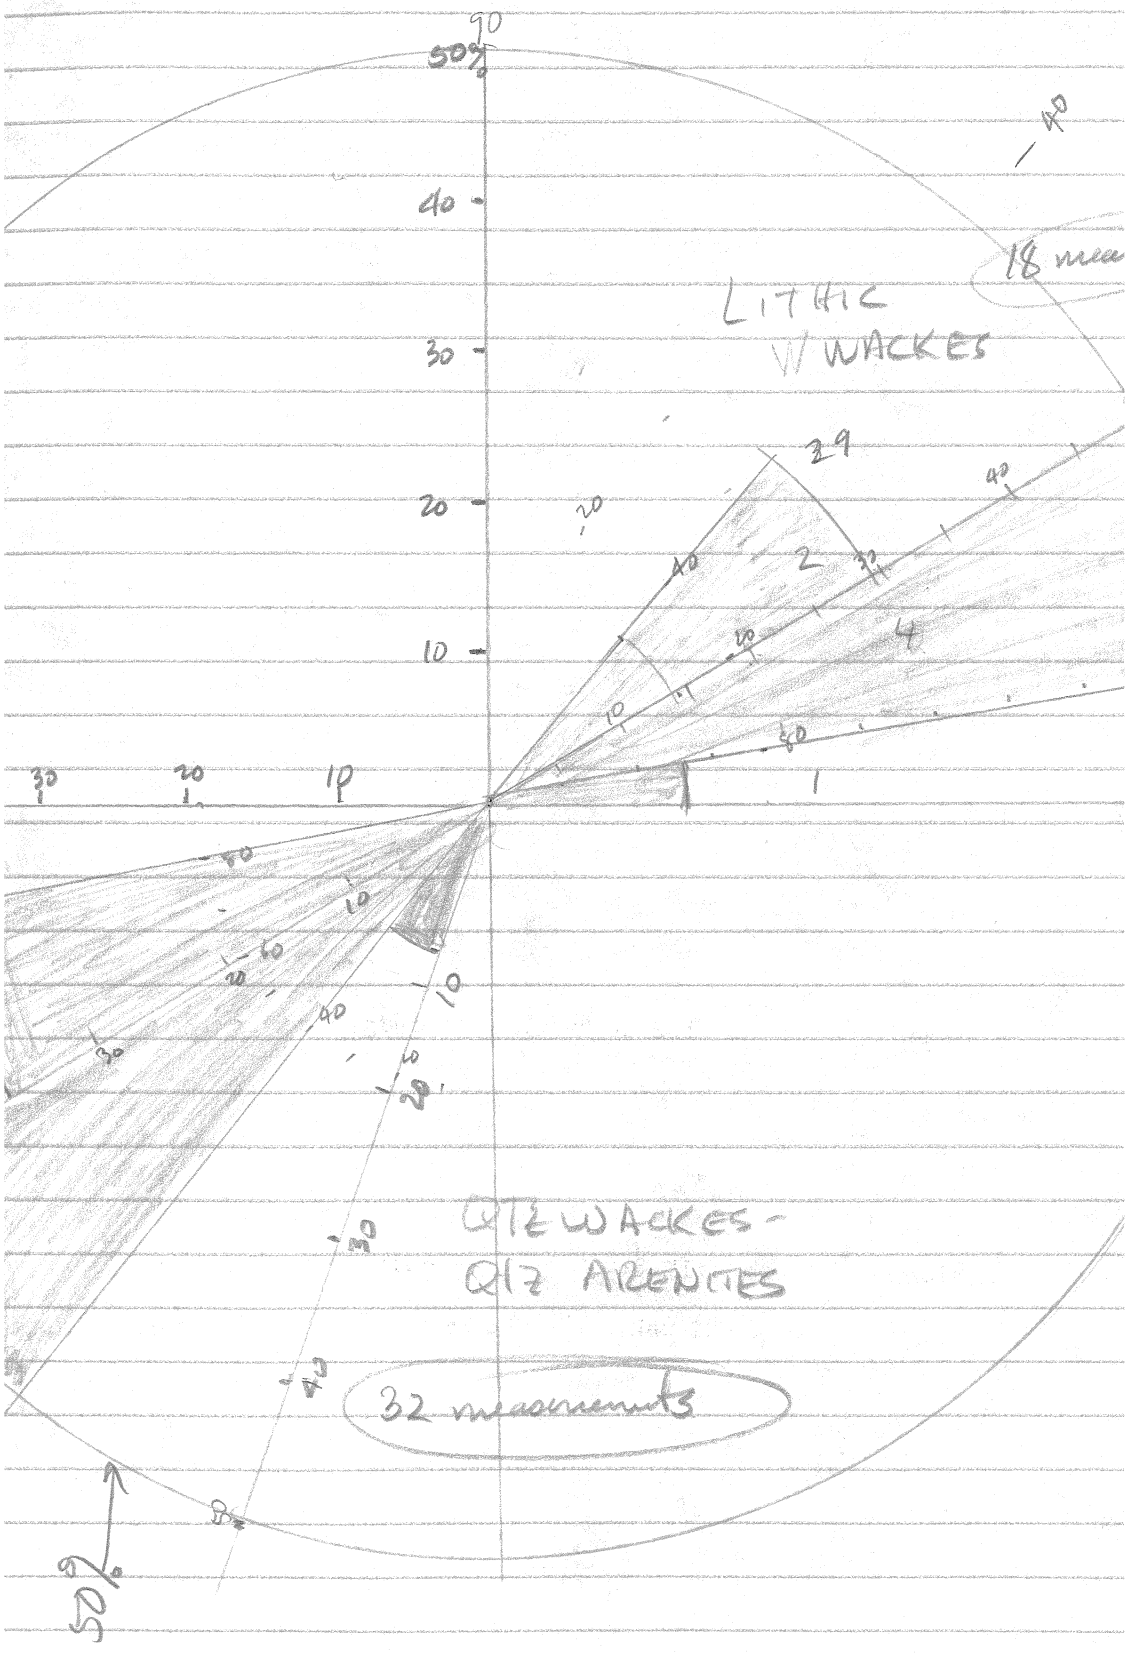 90
50%
40
40
18 mea
LITHIC
W WACKES
30
29
40
20
20
40
2
30
4
10
20
10
80
30 20 10 1
80
10
60
20
40
30
10
20
20
30
QTZ WACKES -
QTZ ARENITES
40
32 measurements
50%